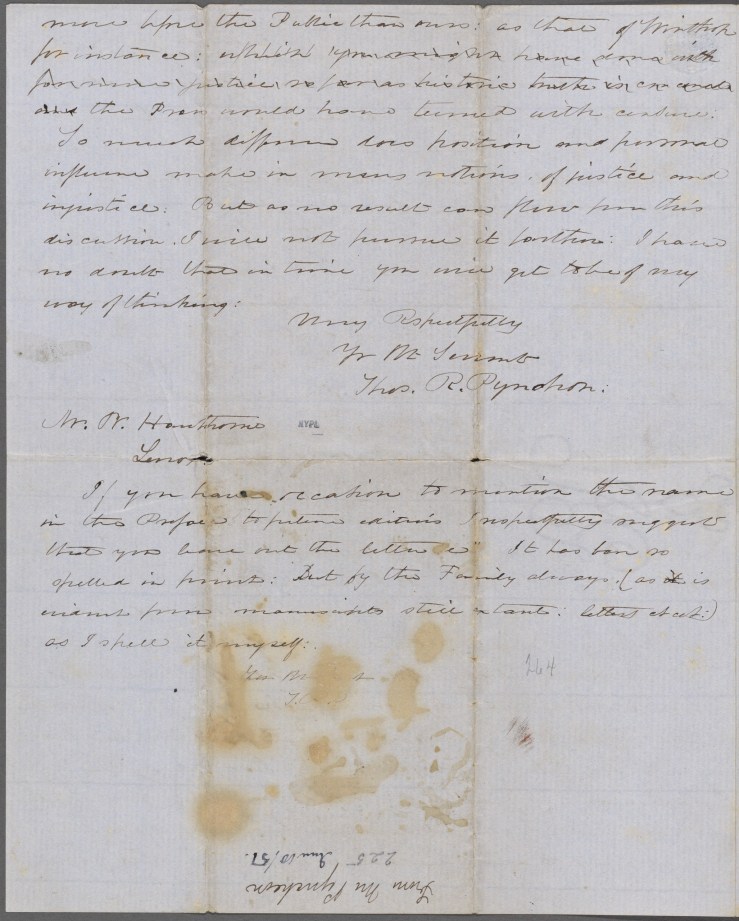 more before the Public than ours: as that of Winthrop
for instance: which you might have done with
far more justice so far as historic truth is concerned
and the Press would have teemed with censure:
So much difference does position and personal
influence make in mens notions of justice and
injustice: But as no result can flow from this
discussion, I will not pursue it farther: I have
no doubt that in time you will get to be of my
way of thinking:
Very Respectfully
Yr Ob Servnt
Thos. R. Pynchon:
Mr. N. Hawthorne
NYPL
Lenox
If you have occasion to mention the name
in the Preface to future editions I respectfully suggest
that you leave out the letter "e" It has been so
spelled in print: But by the Family always (as it is
evident from manuscripts still extant: letters et cet:)
as I spell it myself:
264
225 June 10/51.
From Mr Pyncheon